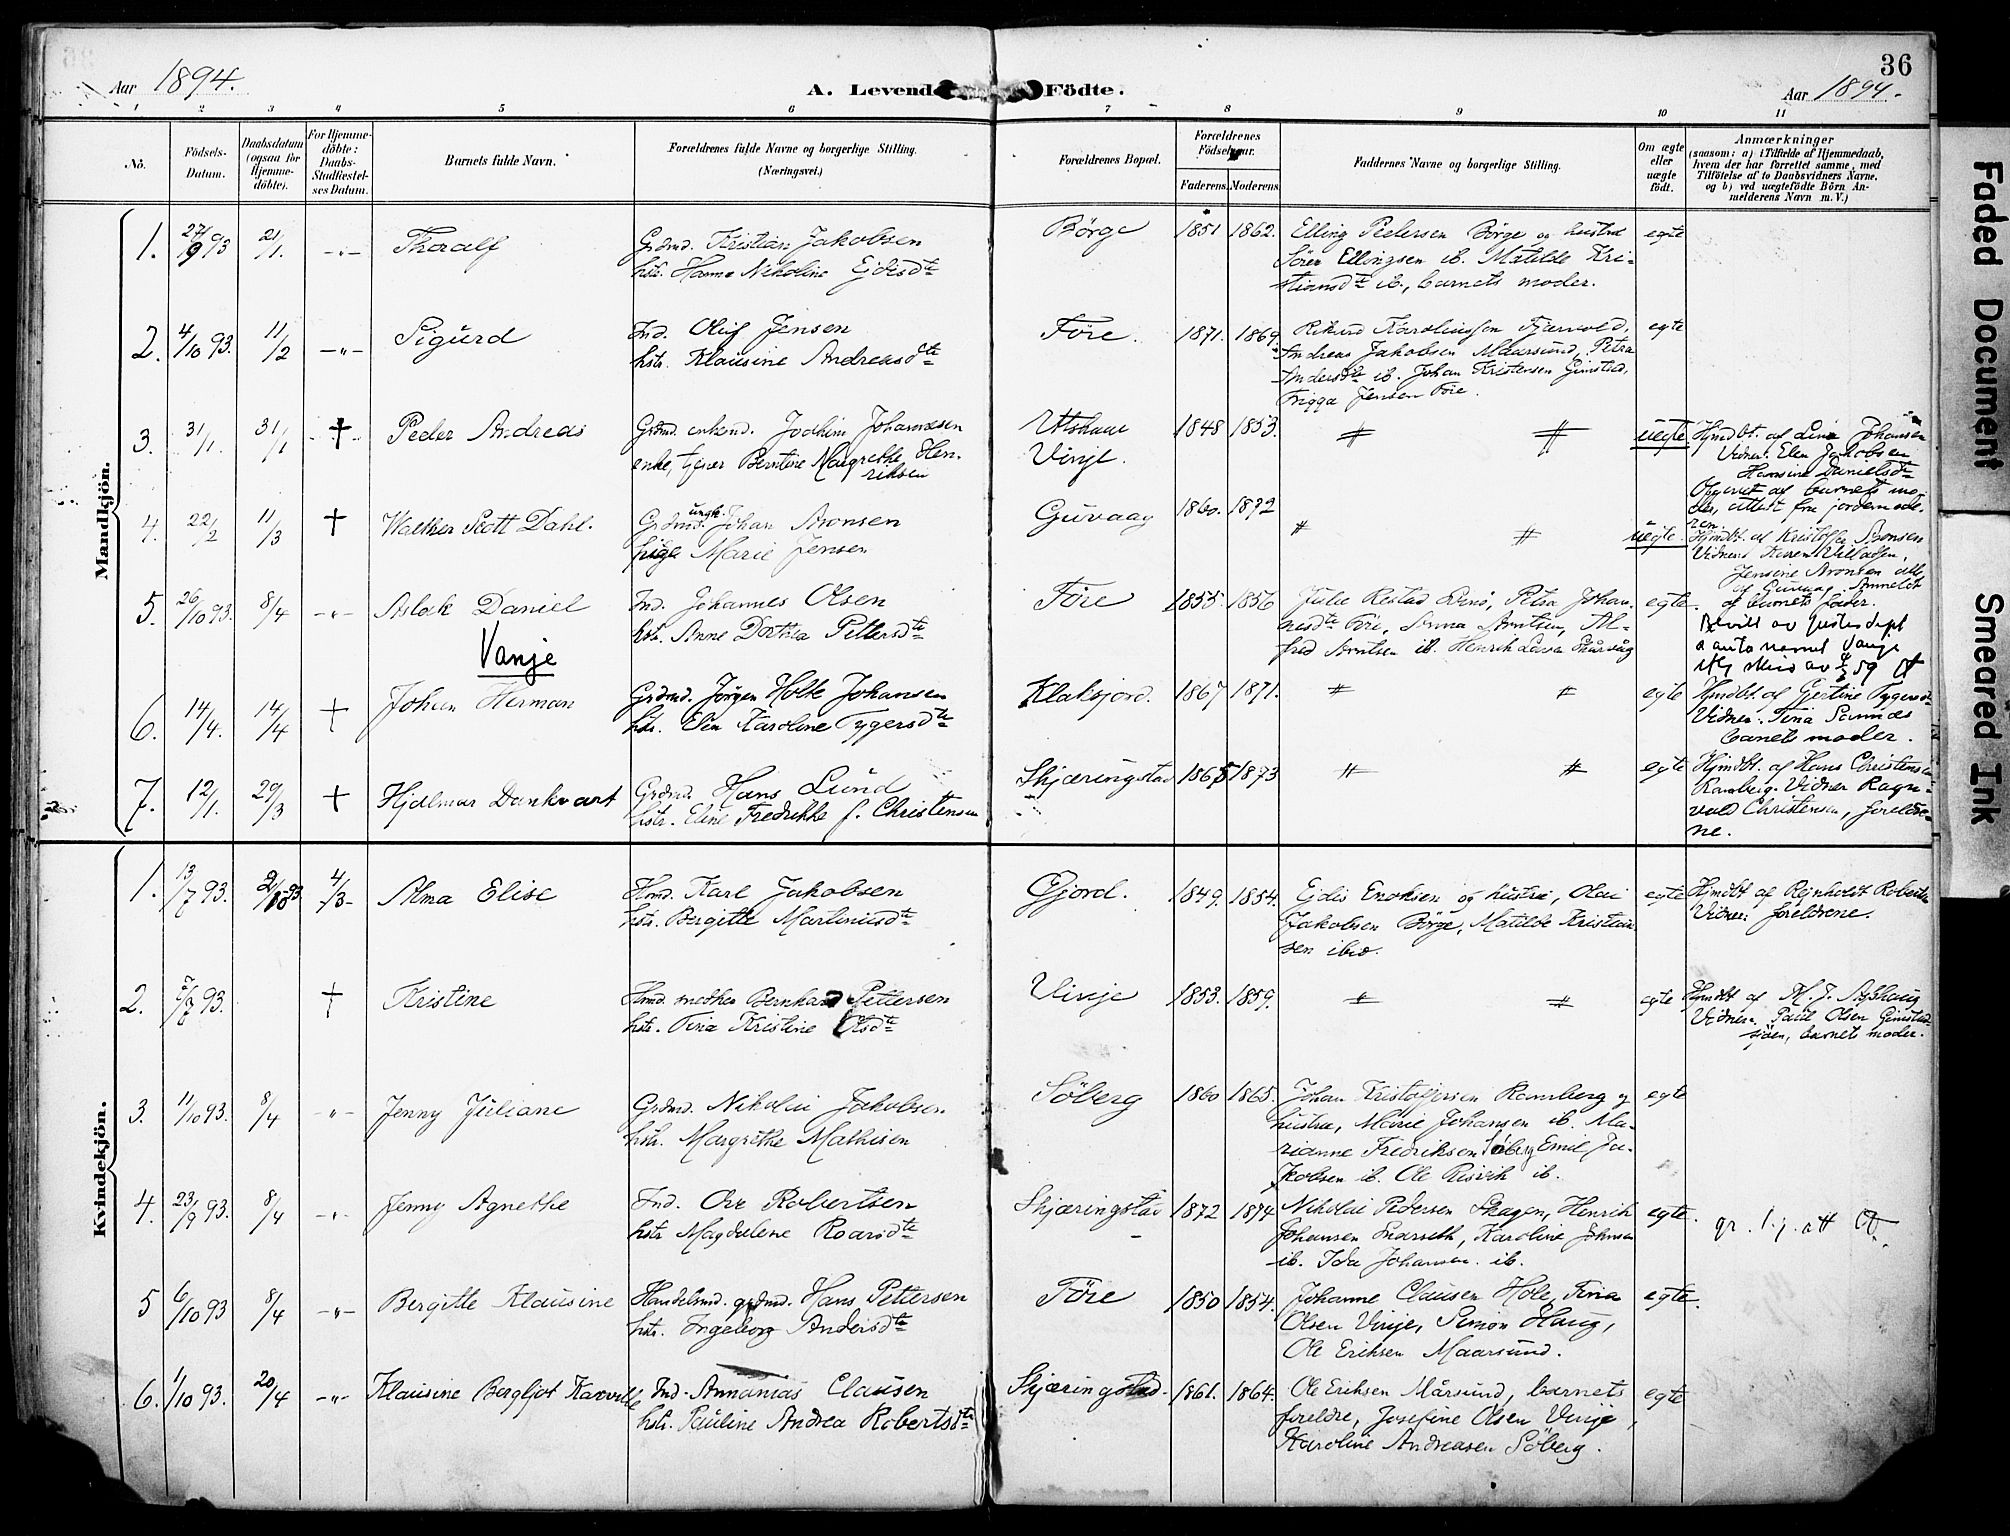 36
Aar 1894.
A. Levende Födte.
Aar 1894.
1 2 3 4 5 6 7 8 9 10 11
No.
Födsels-
Datum.
Daabsdatum
(ogsaa for
Hjemme-
döbte).
For Hjemme-
döbte:
Daabs-
Stadfæstel-
ses Datum.
Barnets fulde Navn.
Forældrenes fulde Navne og borgerlige Stilling.
(Næringsvei.)
Forældrenes Bopæl.
Forældrenes
Födselsaar.
Faderens. Moderens.
Faddernes Navne og borgerlige Stilling.
Om ægte
eller
uægte
födt.
Anmærkninger
(saasom: a) i Tilfælde af Hjemmedaab,
hvem der har forrettet samme, med
Tilföielse af to Daabsvidners Navne,
og b) ved uægtefödte Börn An-
melderens Navn m. V.)
Mandkjön.
1. 27/9 93 21/1. -"- Thoralf
Grdmd. Kristian Jakobsen
hstr. Hanna Nikoline Ejdisdtr
Börge 1851 1862.
Elling Pedersen Börge og hustru
Sören Ellingsen ib. Matilde Kri-
stiansdtr ib., barnets moder.
egte
2. 4/10 93. 11/2 -"- Sigurd
Ind. Oluf Jensen
hstr. Klausine Andreasdtr
Före. 1871. 1869.
Andreas Jakobsen Maarsund, Petra
Andersdtr ib. Johan Kristensen Gimstad,
Frigga Jensen Före.
egte
3. 31/1. 31/1 † Peder Andreas
Grdmd. enkemd. Joakim Johannesen
enke, tjener Berntine Margrethe Hen-
riksen
Vinje. 1848 1853.
uegte
Hjmdbt. af Lina Johansen
Vidner: Elen Jakobsen
Hansine Danielsdtr
Opgivet af barnets mo-
der, attest fra jordemode-
ren.
4. 22/2 11/3 † Walther Scott Dahl.
Grdmd. ungk. Johan Aronsen
pige Marie Jensen
Guvaag 1860. 1872
uegte.
Hjmdbt. af Kristoffer Aronsen
Vidner: Karen Villadsen,
Jensine Aronsen alle
af Guvaag. Anmeldt
af barnets fader.
5. 26/10 93. 8/4 -"- Aslak Daniel
Vanje
Ind. Johannes Olsen
hstr. Anne Dorthea Pettersdtr
Före 1855. 1856
Julie Restad Bö, Petra Johan-
nesdtr Före, Anna Arntsen, Al-
fred Arntsen ib. Henrik Larsen
egte.
Bevilt av Justisdept
å anta navnet Vanje
iflg skriv av
6. 14/4. 14/4 † Johan Herman
Grdmd. Jörgen Holte Johansen
hstr. Elen Karoline Tygersdtr
Klaksjord. 1867 1871.
egte
Hjmdbt. af Gjertine Tygersdtr
Vidner: Tina Sannes
barnets moder.
7. 12/1. 29/3 † Hjalmar Dankvart
Grdmd. Hans Lund
hstr. Eline Fredrikke f. Christensen
Skjæringstad 1865 1873
egte
Hjmdbt. af Hans Christensen
Ramberg. Vidner Ragn-
vald Christensen, foreldre-
ne.
Kvindekjön.
1. 13/7 93. 2/10 93 4/3 Alma Elise
Hmd. Karl Jakobsen
hstr. Bergitte Martinusdtr
Gjord. 1849. 1854.
Ejdis Enoksen og hustru, Olai
Jakobsen Börge, Matilde Kristian-
sen ibid.
egte
Hjmdbt af Rejnholdt Robertsen
Vidner: foreldrene.
2. 7/8 93. † Kristine
Hmd. Bernhard Pettersen
hstr. Tina Kristine Olsdtr
Vinje 1853. 1859.
egte
Hjmdbt af
Vidner: Paul Olsen Gimstad-
sjöen, barnets moder.
3. 11/10 93. 8/4 -"- Jenny Juliane
Grdmd. Nikolai Jakobsen
hstr. Margrethe Mathisen
Söberg 1860 1865.
Johan Kristofersen Ramberg og
hustru, Marie Johansen ib. Ma-
rianne Fredriksen Söberg Emil Ja-
kobsen ib. Ole Risvik ib.
egte
4. 23/9 93. 8/4 -"- Jenny Agnethe
Ind. Ove Robertsen
hstr Magdalene Roarsdtr
Skjæringstad 1872 1874
Nikolai Pedersen Skagen, Henrik
Johansen Snarseth, Karoline Johnsen
ib. Ida Johansen. ib.
egte.
5 6/10 93 8/4 -"- Bergitte Klausine
Handelsmd. grdmd. Hans Pettersen
hstr. Ingeborg Andersdtr
Före 1850 1854.
Johanne Clausen Hole, Tina
Olsen Vinje, Simon Haug,
Ole Eriksen Maarsund.
egte.
6. 1/10 93. 20/4 -"- Klausine Bergljot
Ind. Annanias Clausen
hstr. Pauline Andrea Robertsdtr
Skjæringstad. 1861. 1864.
Ole Eriksen Mårsund, barnets
foreldre, Josefine Olsen Vinje,
Karoline Andreasen Söberg.
egte
Faded Document
Smeared Ink